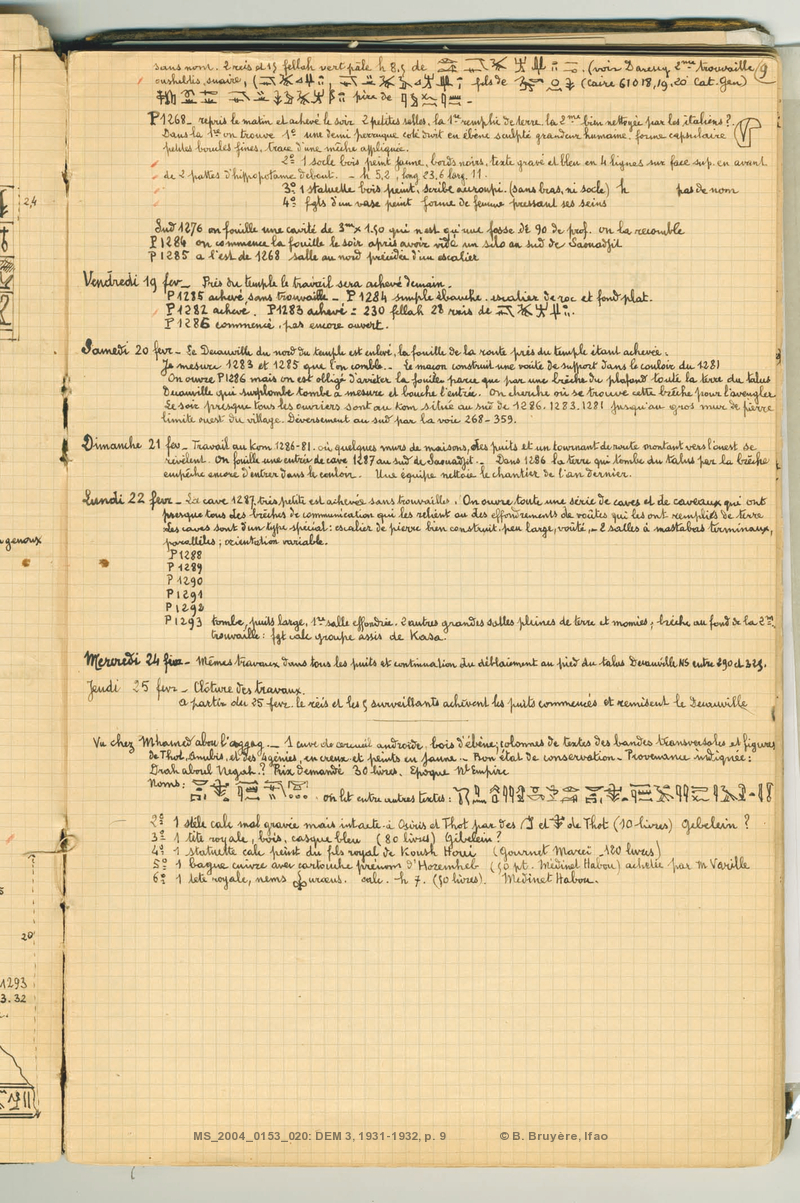 sans nom. 2 reis et 19 fellah vert pâle h 8,5 de (voir Daressy 2me trouvaille
9
oushebtis, suaire, fils de (Caire 61018, 19, 20 Cat. Gen)
père de
P1268 _ repris le matin et achevé le soir. 2 petites salles, la 1re remplie de terre, la 2me bien nettoyée par les italiens?.
Dans la 1re on trouve 1º une demi perruque coté droit en ébène sculpté grandeur humaine, forme capsulaire
petites boucles fines, trace d'une mèche appliquée.
2º 1 socle bois peint jaune, bords noirs, texte gravé et bleu en 4 lignes sur face sup. en avant
de 2 pattes d'hippopotame debout. - h 5,2, long 23,6 larg. 11.
3º 1 statuette bois peint, scribe accroupi. (sans bras, ni socle) h pas de nom
4º fgts d'un vase peint forme de femme pressant ses seins
Sud 1276 on fouille une cavité de 3m x 1.50 qui n'est qu'une fosse de 90 de prof. on la recomble
P1284 on commence la fouille le soir après avoir vidé un silo au sud de Saouadjit
P1285 à l'est de 1268 salle au nord précédée d'un escalier
Vendredi 19 fev _ Près du temple le travail sera achevé demain.
P1285 achevé, sans trouvaille _ P1284 simple ébauche. escalier de roc et fond plat.
P1282 achevé. P1283 achevé = 230 fellah 28 reis de
P1286 commencé, pas encore ouvert.
Samedi 20 fevr _ Le Decauville du nord du temple est enlevé, la fouille de la route près du temple étant achevée.
Je mesure 1283 et 1285 que l'on comble. _ Le maçon construit une voûte de support dans le couloir du 1281
On ouvre P1286 mais on est obligé d'arrêter la fouille parce que par une brèche du plafond toute la terre du talus
Decauville qui surplombe tombe à mesure et bouche l'entrée. On cherche où se trouve cette brèche pour l'aveugler
Le soir presque tous les ouvriers sont au Kom situé au sud de 1286. 1283. 1281 jusqu'au gros mur de pierre
limite ouest du village. Déversement au sud par la voie 268-359.
Dimanche 21 fev _ Travail au Kom 1286-81. où quelques murs de maisons, des puits et un tournant de route montant vers l'ouest se
révèlent. On fouille une entrée de cave 1287 au sud de Saouadjit. _ Dans 1286 la terre qui tombe du talus par la brèche
empêche encore d'entrer dans le couloir. Une équipe nettoie le chantier de l'an dernier.
Lundi 22 fevr _ La cave 1287, très petite est achevée sans trouvailles. On ouvre toute une série de caves et de caveaux qui ont
presque tous des brèches de communication qui les relient ou des effondrements de voûtes qui les ont remplis de terre
Les caves sont d'un type spécial: escalier de pierre bien construit. peu large, voûté, _ 2 salles à mastabas terminaux,
parallèles; orientation variable.
P1288
P1289
P1290
P1291
P1292
P1293 tombe, puits large, 1re salle effondrée. 2 autres grandes salles pleines de terre et momies; brèche au fond de la 2me.
trouvaille: fgt calc groupe assis de Kasa.
Mercredi 24 fevr _ Mêmes travaux dans tous les puits et continuation du déblaiement au pied du talus Decauville NS entre 290 et 325.
Jeudi 25 fevr _ Clôture des travaux.
A partir du 25 fevr. le reis et les 5 surveillants achèvent les puits commencés et remisent le Decauville
Vu chez Mhamed abou l'aggag. _ 1 cuve de cercueil androïde, bois d'ébène; colonnes de textes des bandes transversales et figures
de Thot, Anubis, et des 4 génies, en creux et peints en jaune. _ Bon état de conservation _ Provenance indiquée:
Drah aboul Negah.? Prix demandé 30 livres. époque Nl Empire
Noms: . on lit entre autres textes:
2º 1 stèle calc mal gravée mais intacte à Osiris et Thot par des et de Thot (10 livres) Gebelein?
3º 1 tête royale, bois, casque bleu (80 livres) Gebelein?
4º 1 statuette calc peint du fils royal de Koush Houi (Gournet Mareï _ 120 livres)
5º 1 bague cuivre avec cartouche prénom d'Horemheb (50 pt. Médinet Habou) achetée par M Varille
6º 1 tête royale, nems uraeus. calc. h 7. (50 livres). Médinet Habou.
2,4
genoux
20
1293
3.32
MS_2004_0153_020: DEM 3, 1931-1932, p. 9 © B. Bruyère, Ifao